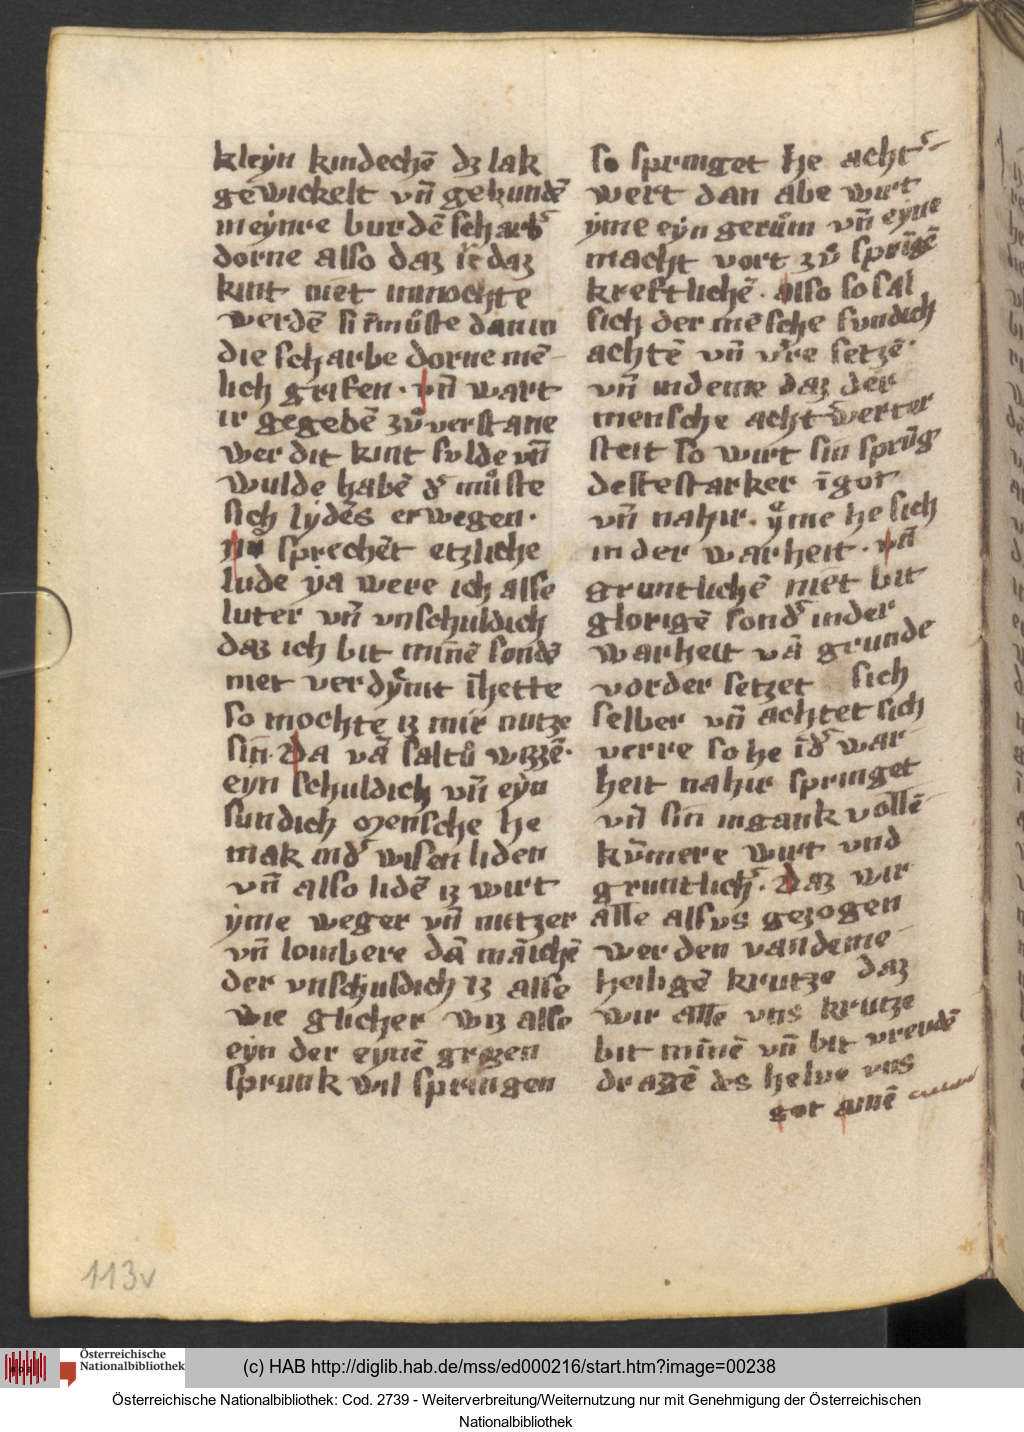 kleyn kindechē dz lak
gewickelt vn̄ gebundē
in eynre burdē scharbˢ
dorne also daz iē daz
kint niet inmochte
werdē si ēmuͦste dan in
die scharbe dorne mē
lich grifen · vn̄ wart
ir gegebē zuͦ verstane
wer dit kint sulde vn̄
wulde habē dˢ muͦste
sich lydēs erwegen ·
nv sprechēt etzliche
lude ya were ich alse
luter vn̄ vnschuldich
daz ich bit minnē sondē
niet verdȳnit īhette
so mochte iz mir nutze
sin · Da vā saltuͦ wizzē ·
eyn schuldich vn̄ eyn
sundich mensche he
mak indˢ wisen liden
vn̄ also lidē iz wurt
yme weger vn̄ nutzer
vn̄ lonbere dā māichē
der vnschuldich iz alse
wie glicher wiz also
eyn der eynē grozen
sprunk wil springen
so springet he achtˢ
wert dan abe wirt
yme eyn geruͦm vn̄ eyne
macht vort zuͦ sprīgē
kreftlichē · also so sal
sich der mēsche sundich
achtē vn̄ vˢre setzē ·
vn̄ indeme daz der
mensche achtˢwerter
steit so wirt sin sprūg
deste starker ī got
vn̄ nahir · yme he sich
in der warheit · vn̄
gruntlichē niet bit
glorigē sondˢ in der
warheit vā grunde
vorder setzet sich
selber vn̄ achtet sich
verre so he īdˢ war
heit nahir springet
vn̄ sin ingank volle
kūmere wirt vnd
gruntlichˢ · Daz wir
alle alsus gezogen
werden van deme
heiligē krutze daz
wir alle vns krutze
bit minnē vn̄ bit vreudē
dragē des helue vns
got amē
113v
Österreichische
Nationalbibliothek
(c) HAB http://diglib.hab.de/mss/ed000216/start.htm?image=00238
Österreichische Nationalbibliothek: Cod. 2739 - Weiterverbreitung/Weiternutzung nur mit Genehmigung der Österreichischen
Nationalbibliothek